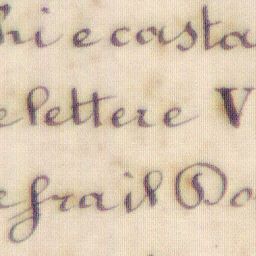 hi e casta
e lettere V
e fra il Do